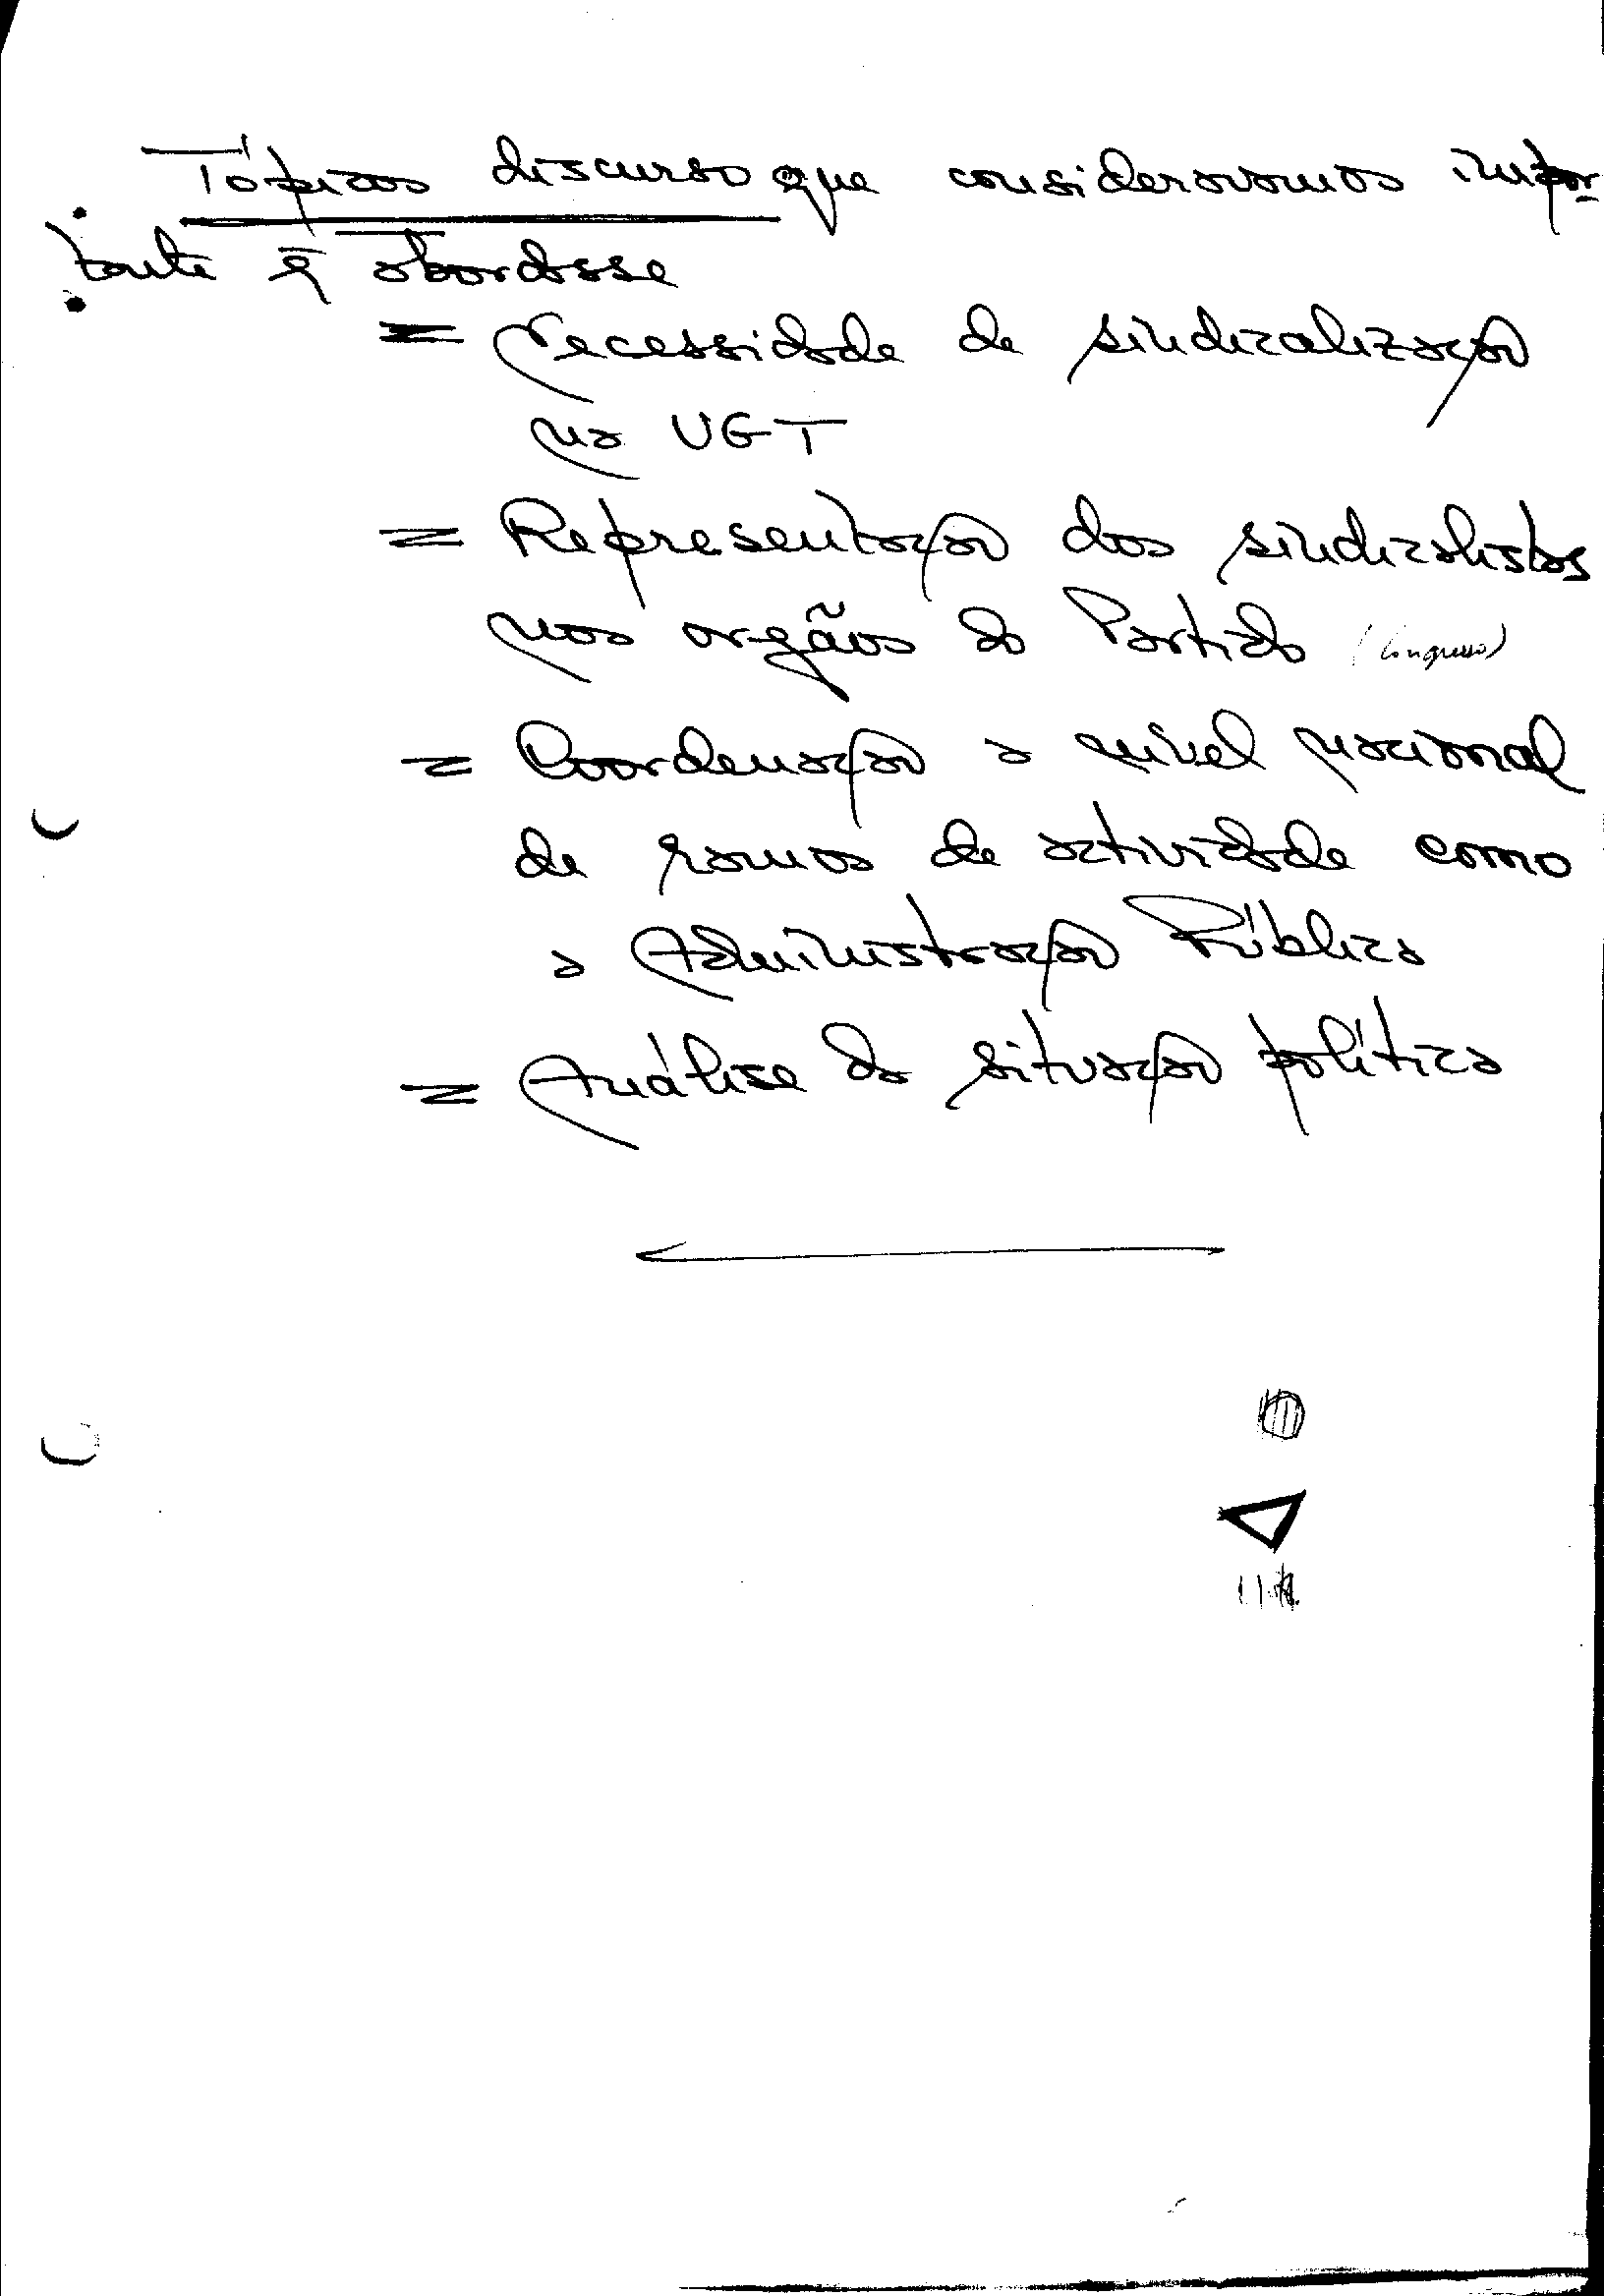 Tópicos discurso que consideravamos impor-
tante q̄ abordasse
= Necessidade de sindicalização
na UGT
= Representação dos sindicalistas
nos orgãos do Partido (Congresso)
= Coordenação a nível nacional
de ramos de actividade como
a Administração Pública
= Análise da situação política